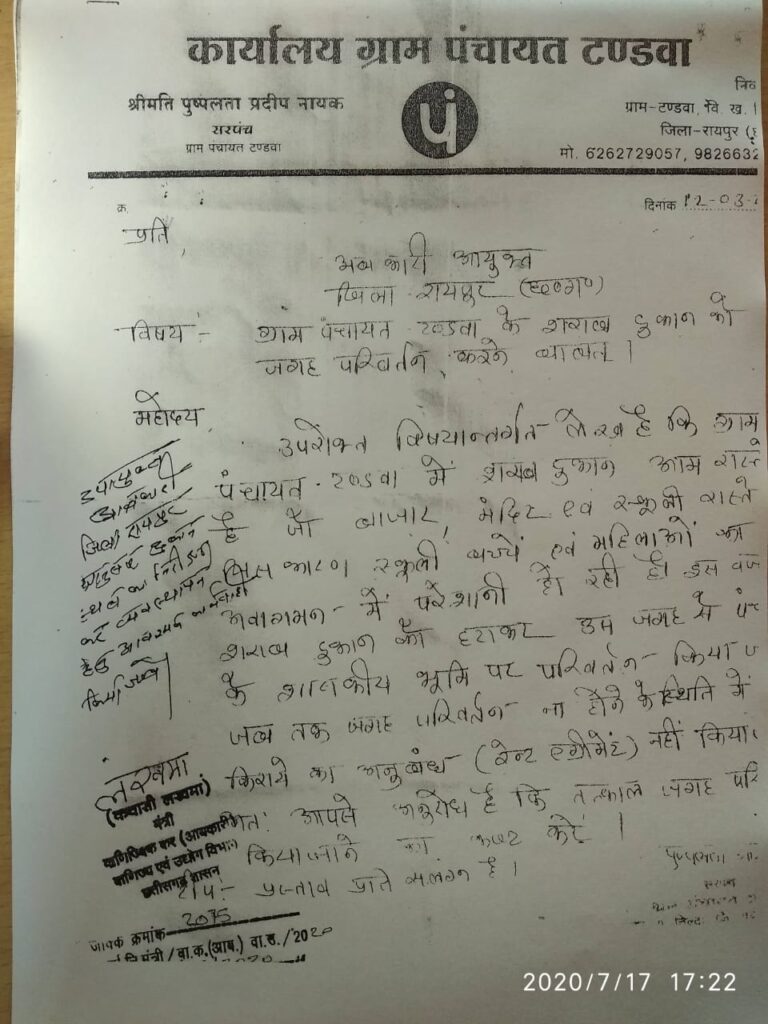 कार्यालय ग्राम पंचायत टण्डवा
श्रीमति पुष्पलता प्रदीप नायक
सरपंच
ग्राम पंचायत टण्डवा
पं
ग्राम-टण्डवा, वि. ख.
जिला-रायपुर
मो. 6262729057, 9826632
क्र.
दिनांक 12-03-
प्रति,
आबकारी आयुक्त
जिला रायपुर (छ०ग०)
विषय :- ग्राम पंचायत टण्डवा के शराब दुकान को
जगह परिवर्तन करने बाबत।
महोदय,
उपरोक्त विषयान्तर्गत लेख है कि ग्राम
पंचायत टण्डवा में शराब दुकान आम रास्ते
है जो बाजार, मंदिर एवं स्कूली रास्ते
जिस कारण स्कूली बच्चें एवं महिलाओं का
अवागमन में परेशानी हो रही है। इस वज
शराब दुकान को हटाकर उस जगह से पं
के शासकीय भूमि पर परिवर्तन किया ज
जब तक जगह परिवर्तन ना होने के स्थिति में
किराये का अनुबंध (रेन्ट एग्रीमेंट) नहीं किया
अत: आपसे अनुरोध है कि तत्काल जगह परि
किया जाने का कष्ट करें।
टीप:- प्रस्ताव प्रति संलग्न है।
उपायुक्त
आबकारी
जिला रायपुर
स्थल का निरीक्षण
कर व्यवस्थापन
हेतु आवश्यक कार्यवाही
किया जावे
लखमा
(कवासी लखमा)
मंत्री
वाणिज्यिक कर (आबकारी)
वाणिज्य एवं उद्योग विभाग
छत्तीसगढ़ शासन
जावक क्रमांक 2075
मंत्री/वा.क.(आब.) वा.उ./2020
पुष्पलता
सरपंच
2020/7/17 17:22